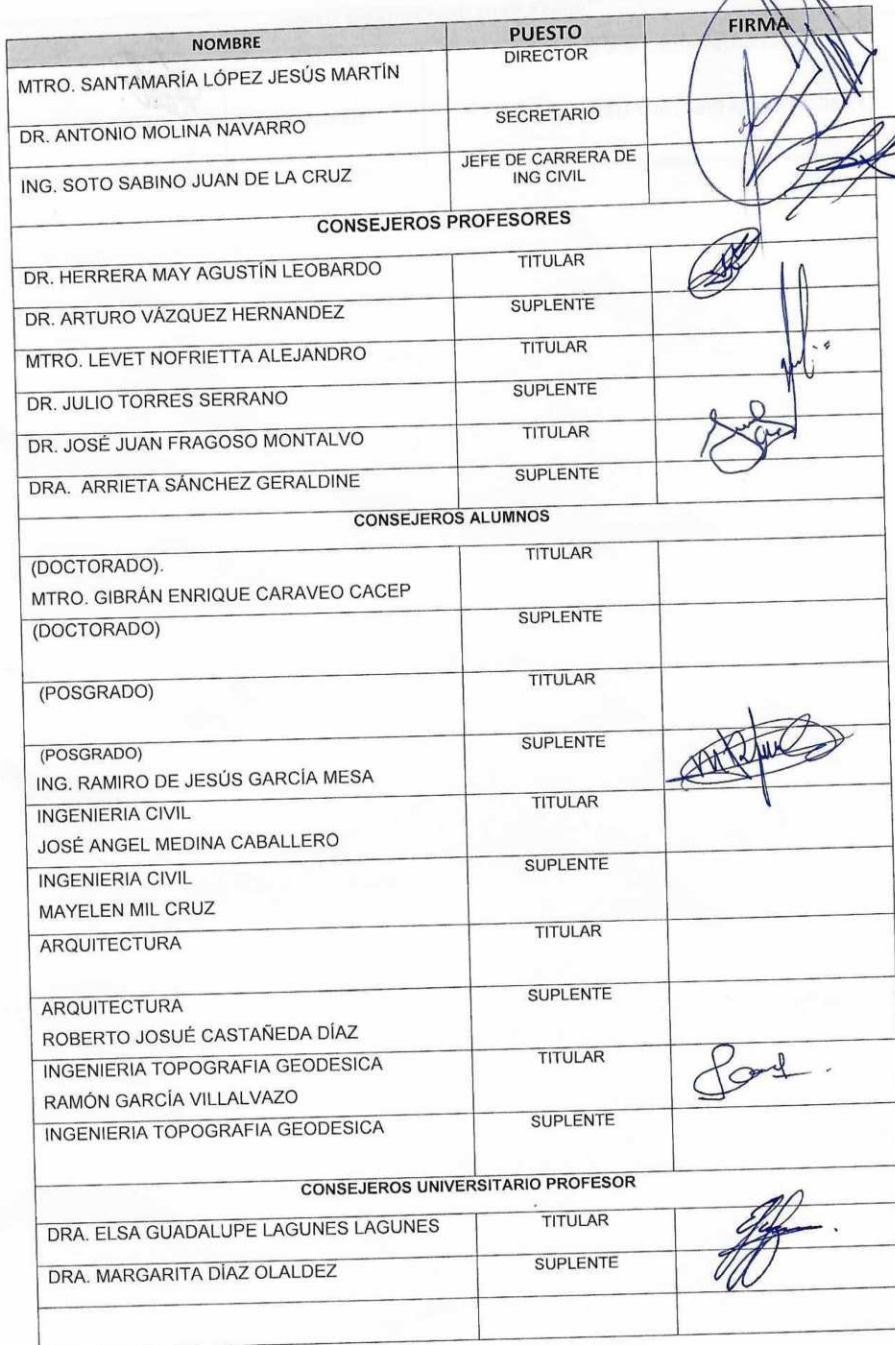 NOMBRE PUESTO FIRMA
MTRO. SANTAMARÍA LÓPEZ JESÚS MARTÍN DIRECTOR
DR. ANTONIO MOLINA NAVARRO SECRETARIO
ING. SOTO SABINO JUAN DE LA CRUZ JEFE DE CARRERA DE
ING CIVIL
CONSEJEROS PROFESORES
DR. HERRERA MAY AGUSTÍN LEOBARDO TITULAR
DR. ARTURO VÁZQUEZ HERNANDEZ SUPLENTE
MTRO. LEVET NOFRIETTA ALEJANDRO TITULAR
DR. JULIO TORRES SERRANO SUPLENTE
DR. JOSÉ JUAN FRAGOSO MONTALVO TITULAR
DRA. ARRIETA SÁNCHEZ GERALDINE SUPLENTE
CONSEJEROS ALUMNOS
(DOCTORADO). TITULAR
MTRO. GIBRÁN ENRIQUE CARAVEO CACEP
(DOCTORADO) SUPLENTE
(POSGRADO) TITULAR
(POSGRADO) SUPLENTE
ING. RAMIRO DE JESÚS GARCÍA MESA
INGENIERIA CIVIL TITULAR
JOSÉ ANGEL MEDINA CABALLERO
INGENIERIA CIVIL SUPLENTE
MAYELEN MIL CRUZ
ARQUITECTURA TITULAR
ARQUITECTURA SUPLENTE
ROBERTO JOSUÉ CASTAÑEDA DÍAZ
INGENIERIA TOPOGRAFIA GEODESICA TITULAR
RAMÓN GARCÍA VILLALVAZO
INGENIERIA TOPOGRAFIA GEODESICA SUPLENTE
CONSEJEROS UNIVERSITARIO PROFESOR
DRA. ELSA GUADALUPE LAGUNES LAGUNES TITULAR
DRA. MARGARITA DÍAZ OLALDEZ SUPLENTE